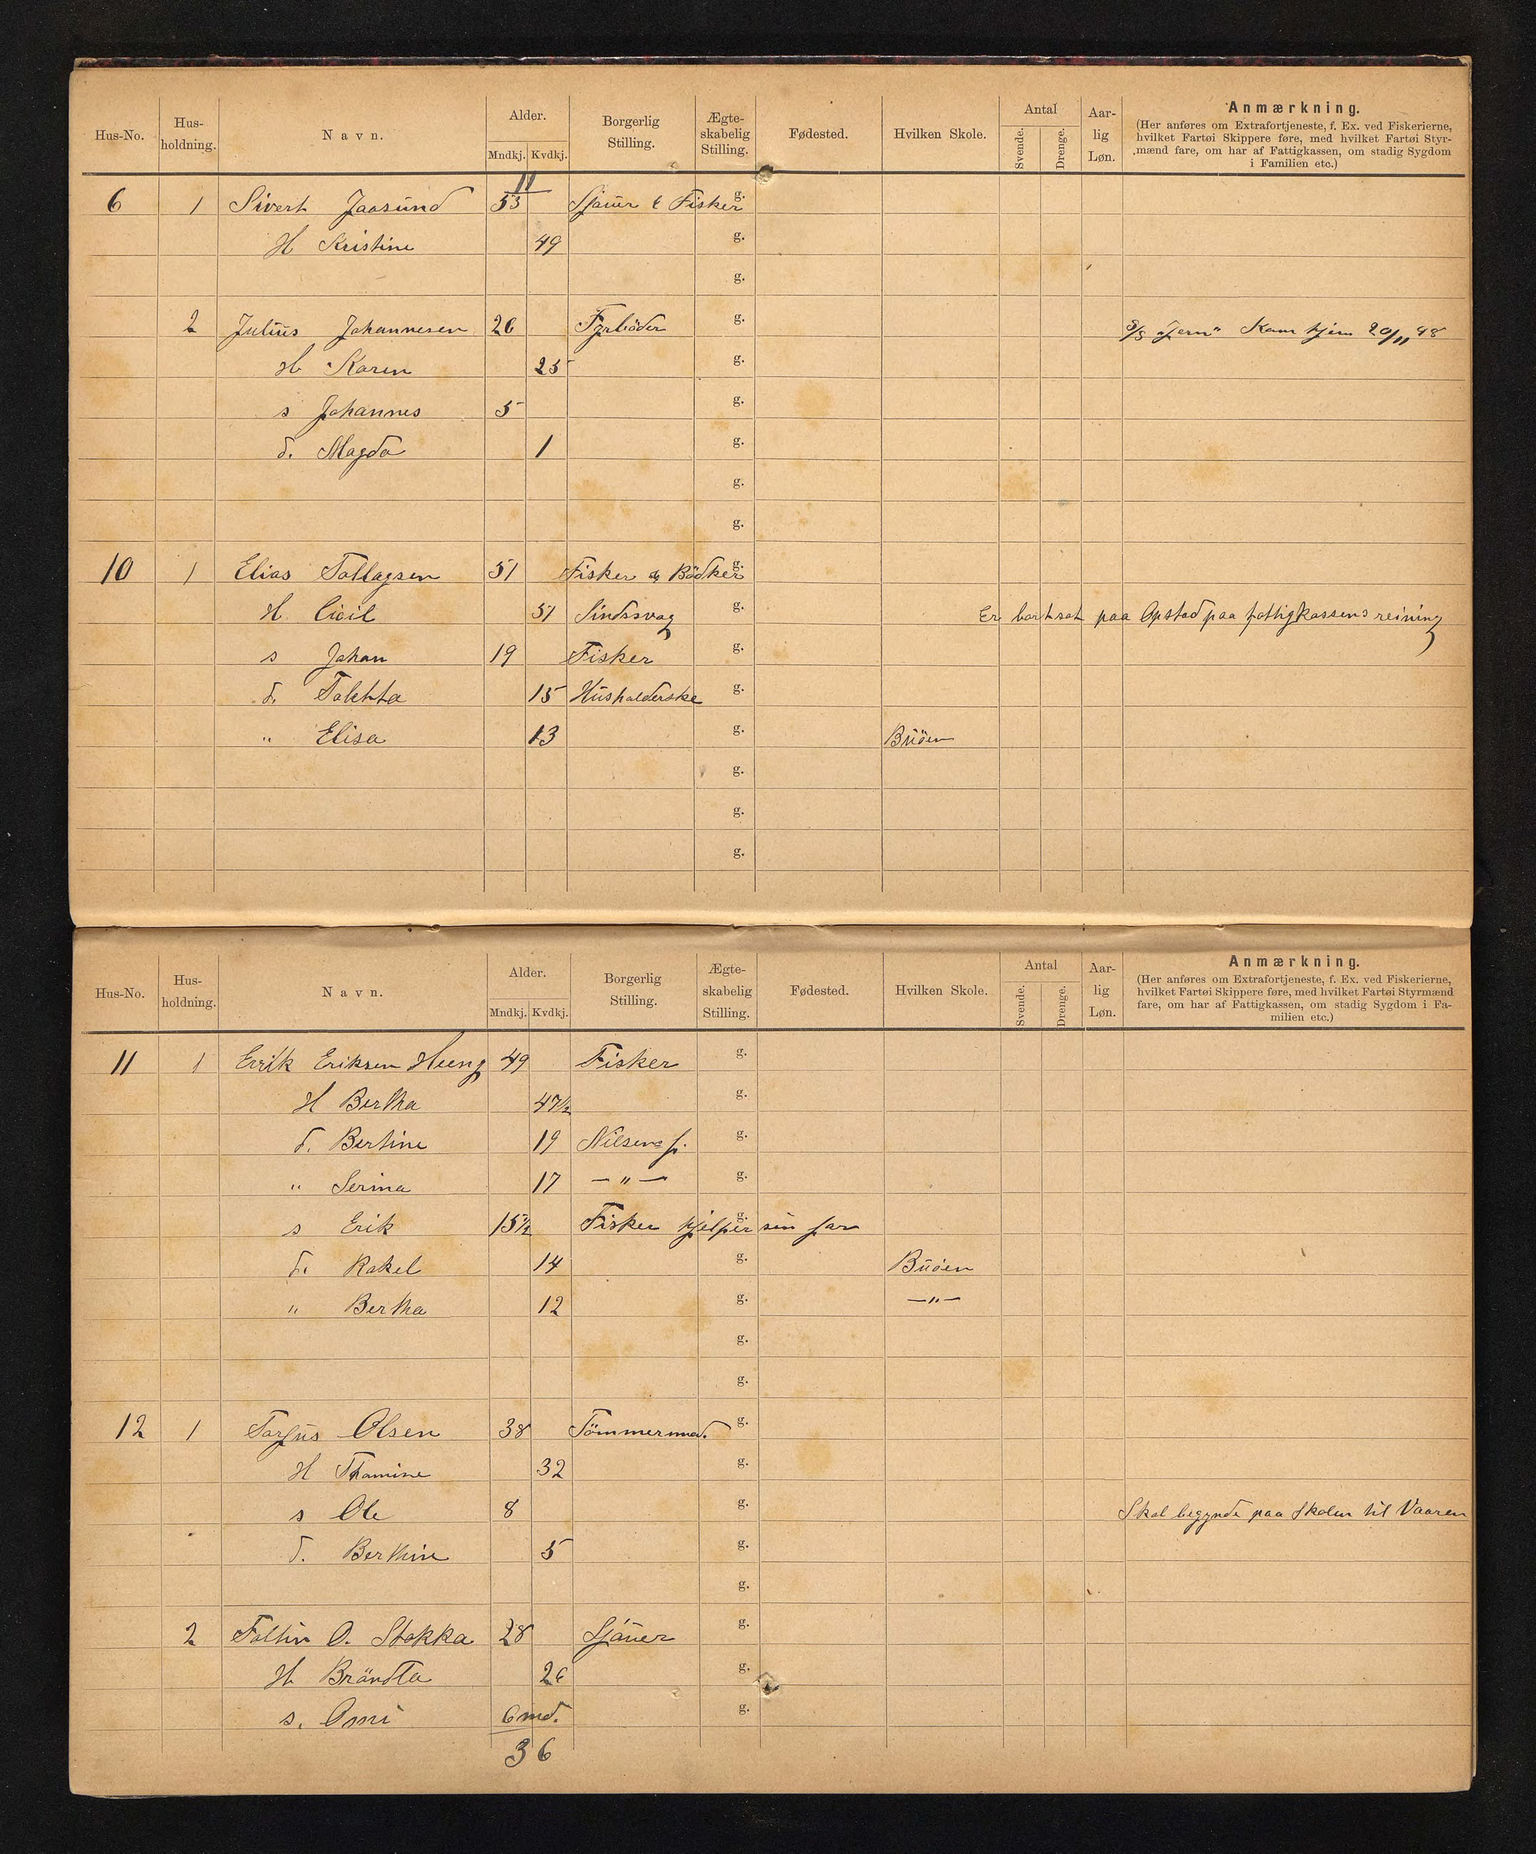 Hus-No. Hus-holdning. Navn. Alder. Mndkj. Kvdkj. Borgerlig Stilling. Ægte-skabelig Stilling. Fødested. Hvilken Skole. Antal Svende. Drenge. Aar-lig Løn. Anmærkning.
(Her anføres om Extrafortjeneste, f. Ex. ved Fiskerierne,
hvilket Fartøi Skippere føre, med hvilket Fartøi Styr-
mænd fare, om har af Fattigkassen, om stadig Sygdom
i Familien etc.)
11
6 1 Sivert Jaasund 53 Sjauer & Fisker g.
H Kristine 49 g.
g.
2 Julius Johannesen 26 Fyrböder g. S/S "Jern" Kom hjem 20/11 98
H Karen 25 g.
s Johannes 5 g.
d. Magda 1 g.
g.
g.
10 1 Elias Tollagsen 51 Fisker og Bödker g.
H Cicil 51 Sindssvag g. Er bortsat paa Opstad paa fattigkassens reining
s Johan 19 Fisker g.
d. Taletta 15 Husholderske g.
" Elisa 13 g. Buöen
g.
g.
g.
Hus-No. Hus-holdning. Navn. Alder. Mndkj. Kvdkj. Borgerlig Stilling. Ægte-skabelig Stilling. Fødested. Hvilken Skole. Antal Svende. Drenge. Aar-lig Løn. Anmærkning.
(Her anføres om Extrafortjeneste, f. Ex. ved Fiskerierne,
hvilket Fartøi Skippere føre, med hvilket Fartøi Styrmænd
fare, om har af Fattigkassen, om stadig Sygdom i Fa-
milien etc.)
11 1 Erik Eriksen Heeng 49 Fisker g.
H Bertha 47½ g.
d. Bertine 19 Nilsens f. g.
" Serina 17 — " — g.
s Erik 15½ Fisker hjelper sin far g.
d. Rakel 14 g. Buöen
" Bertha 12 g. — " —
g.
g.
12 1 Tarjus Olsen 38 Tömmermd. g.
H Thomine 32 g.
s Ole 8 g. Skal begynde paa Skolen til Vaaren
d. Berthine 5 g.
g.
2 Tallin O. Stokka 28 Sjauer g.
H Brändta 26 g.
s. Omi 6 md. g.
36